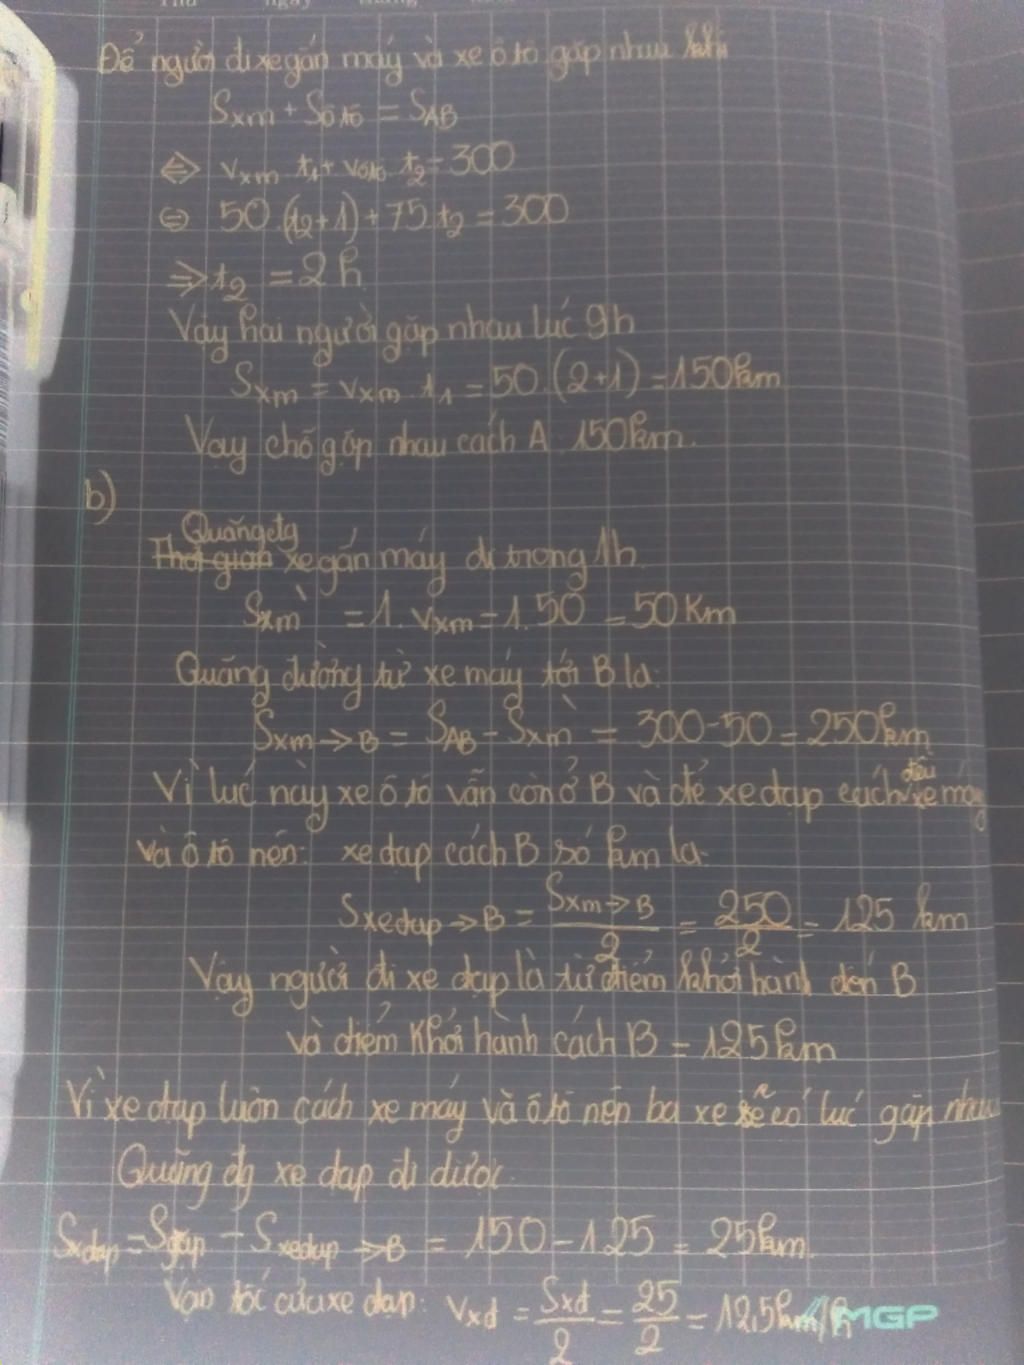 Thứ ngày tháng năm
Để người đi xe gắn máy và xe ô tô gặp nhau khi
Sxm + Sôtô = SAB
⇔ vxm . t1 + vôtô . t2 = 300
⇔ 50 . (t2+1) + 75 . t2 = 300
⇒ t2 = 2h
Vậy hai người gặp nhau lúc 9h
Sxm = vxm . t1 = 50 . (2+1) = 150km
Vậy chỗ gặp nhau cách A 150km.
b)
Quãng đg
Thời gian xe gắn máy đi trong 1h
Sxm' = 1 . vxm = 1 . 50 = 50 Km
Quãng đường từ xe máy tới B là:
Sxm→B = SAB - Sxm' = 300 - 50 = 250km
đều
Vì lúc này xe ô tô vẫn còn ở B và để xe đạp cách xe máy
và ô tô nên: xe đạp cách B số km là:
Sxeđạp→B = Sxm→B / 2 = 250 / 2 = 125 km
Vậy người đi xe đạp là từ điểm khởi hành đến B
và điểm khởi hành cách B = 125km
Vì xe đạp luôn cách xe máy và ô tô nên ba xe sẽ có lúc gặp nhau
Quãng đg xe đạp đi được.
Sxđạp = Sgặp - Sxeđạp→B = 150 - 125 = 25km.
Vận tốc của xe đạp: vxđ = Sxđ / 2 = 25 / 2 = 12,5km/h
MGP